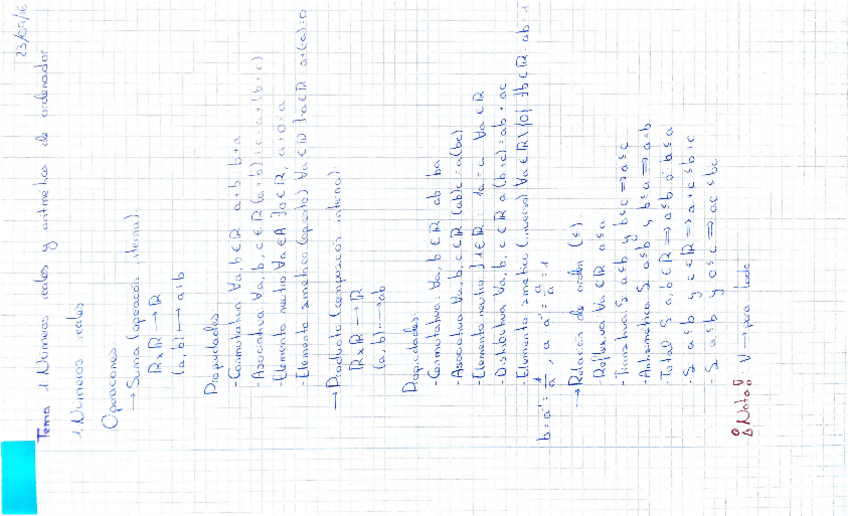 23/09/16
Tema 1: Números reales y aritmética de ordenador
1. Números reales
Operaciones
→ Suma (operación interna):
R x R → R
(a, b) → a+b
Propiedades
- Conmutativa ∀a, b ∈ R a+b = b+a
- Asociativa ∀a, b, c ∈ R (a+b)+c = a+(b+c)
- Elemento neutro ∀a ∈ R ∃0 ∈ R, a+0 = a
- Elemento simétrico (opuesto) ∀a ∈ R ∃-a ∈ R a+(-a) = 0
→ Producto (composición interna):
R x R → R
(a, b) → ab
Propiedades:
- Conmutativa: ∀a, b ∈ R ab = ba
- Asociativa ∀a, b, c ∈ R (ab)c = a(bc)
- Elemento neutro ∃1 ∈ R : 1a = a ∀a ∈ R
- Distributiva ∀a, b, c ∈ R a(b+c) = ab + ac
- Elemento simétrico (inverso) ∀a ∈ R\{0} ∃b ∈ R : ab = 1
b = a⁻¹ = 1/a, a a⁻¹ = a/a = 1
→ Relación de orden (≤):
- Reflexiva ∀a ∈ R a≤a
- Transitiva: Si a≤b y b≤c ⇒ a≤c
- Antisimétrica Si a≤b y b≤a ⇒ a=b
- Total Si a, b ∈ R ⇒ a≤b ó b≤a
- Si a≤b y c ∈ R ⇒ a+c ≤ b+c
- Si a≤b y 0≤c ⇒ ac ≤ bc
Nota: ∀ → para todo